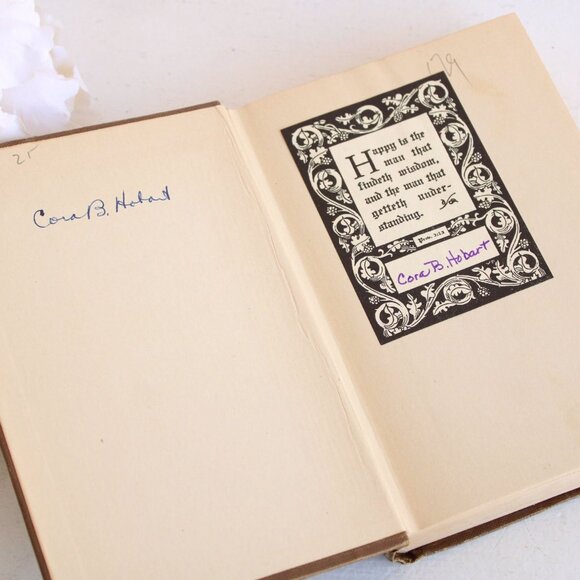 25
Cora B. Hobart
179
Happy is the
man that
findeth wisdom,
and the man that
getteth under-
standing.
Prov. 3:13
Cora B. Hobart